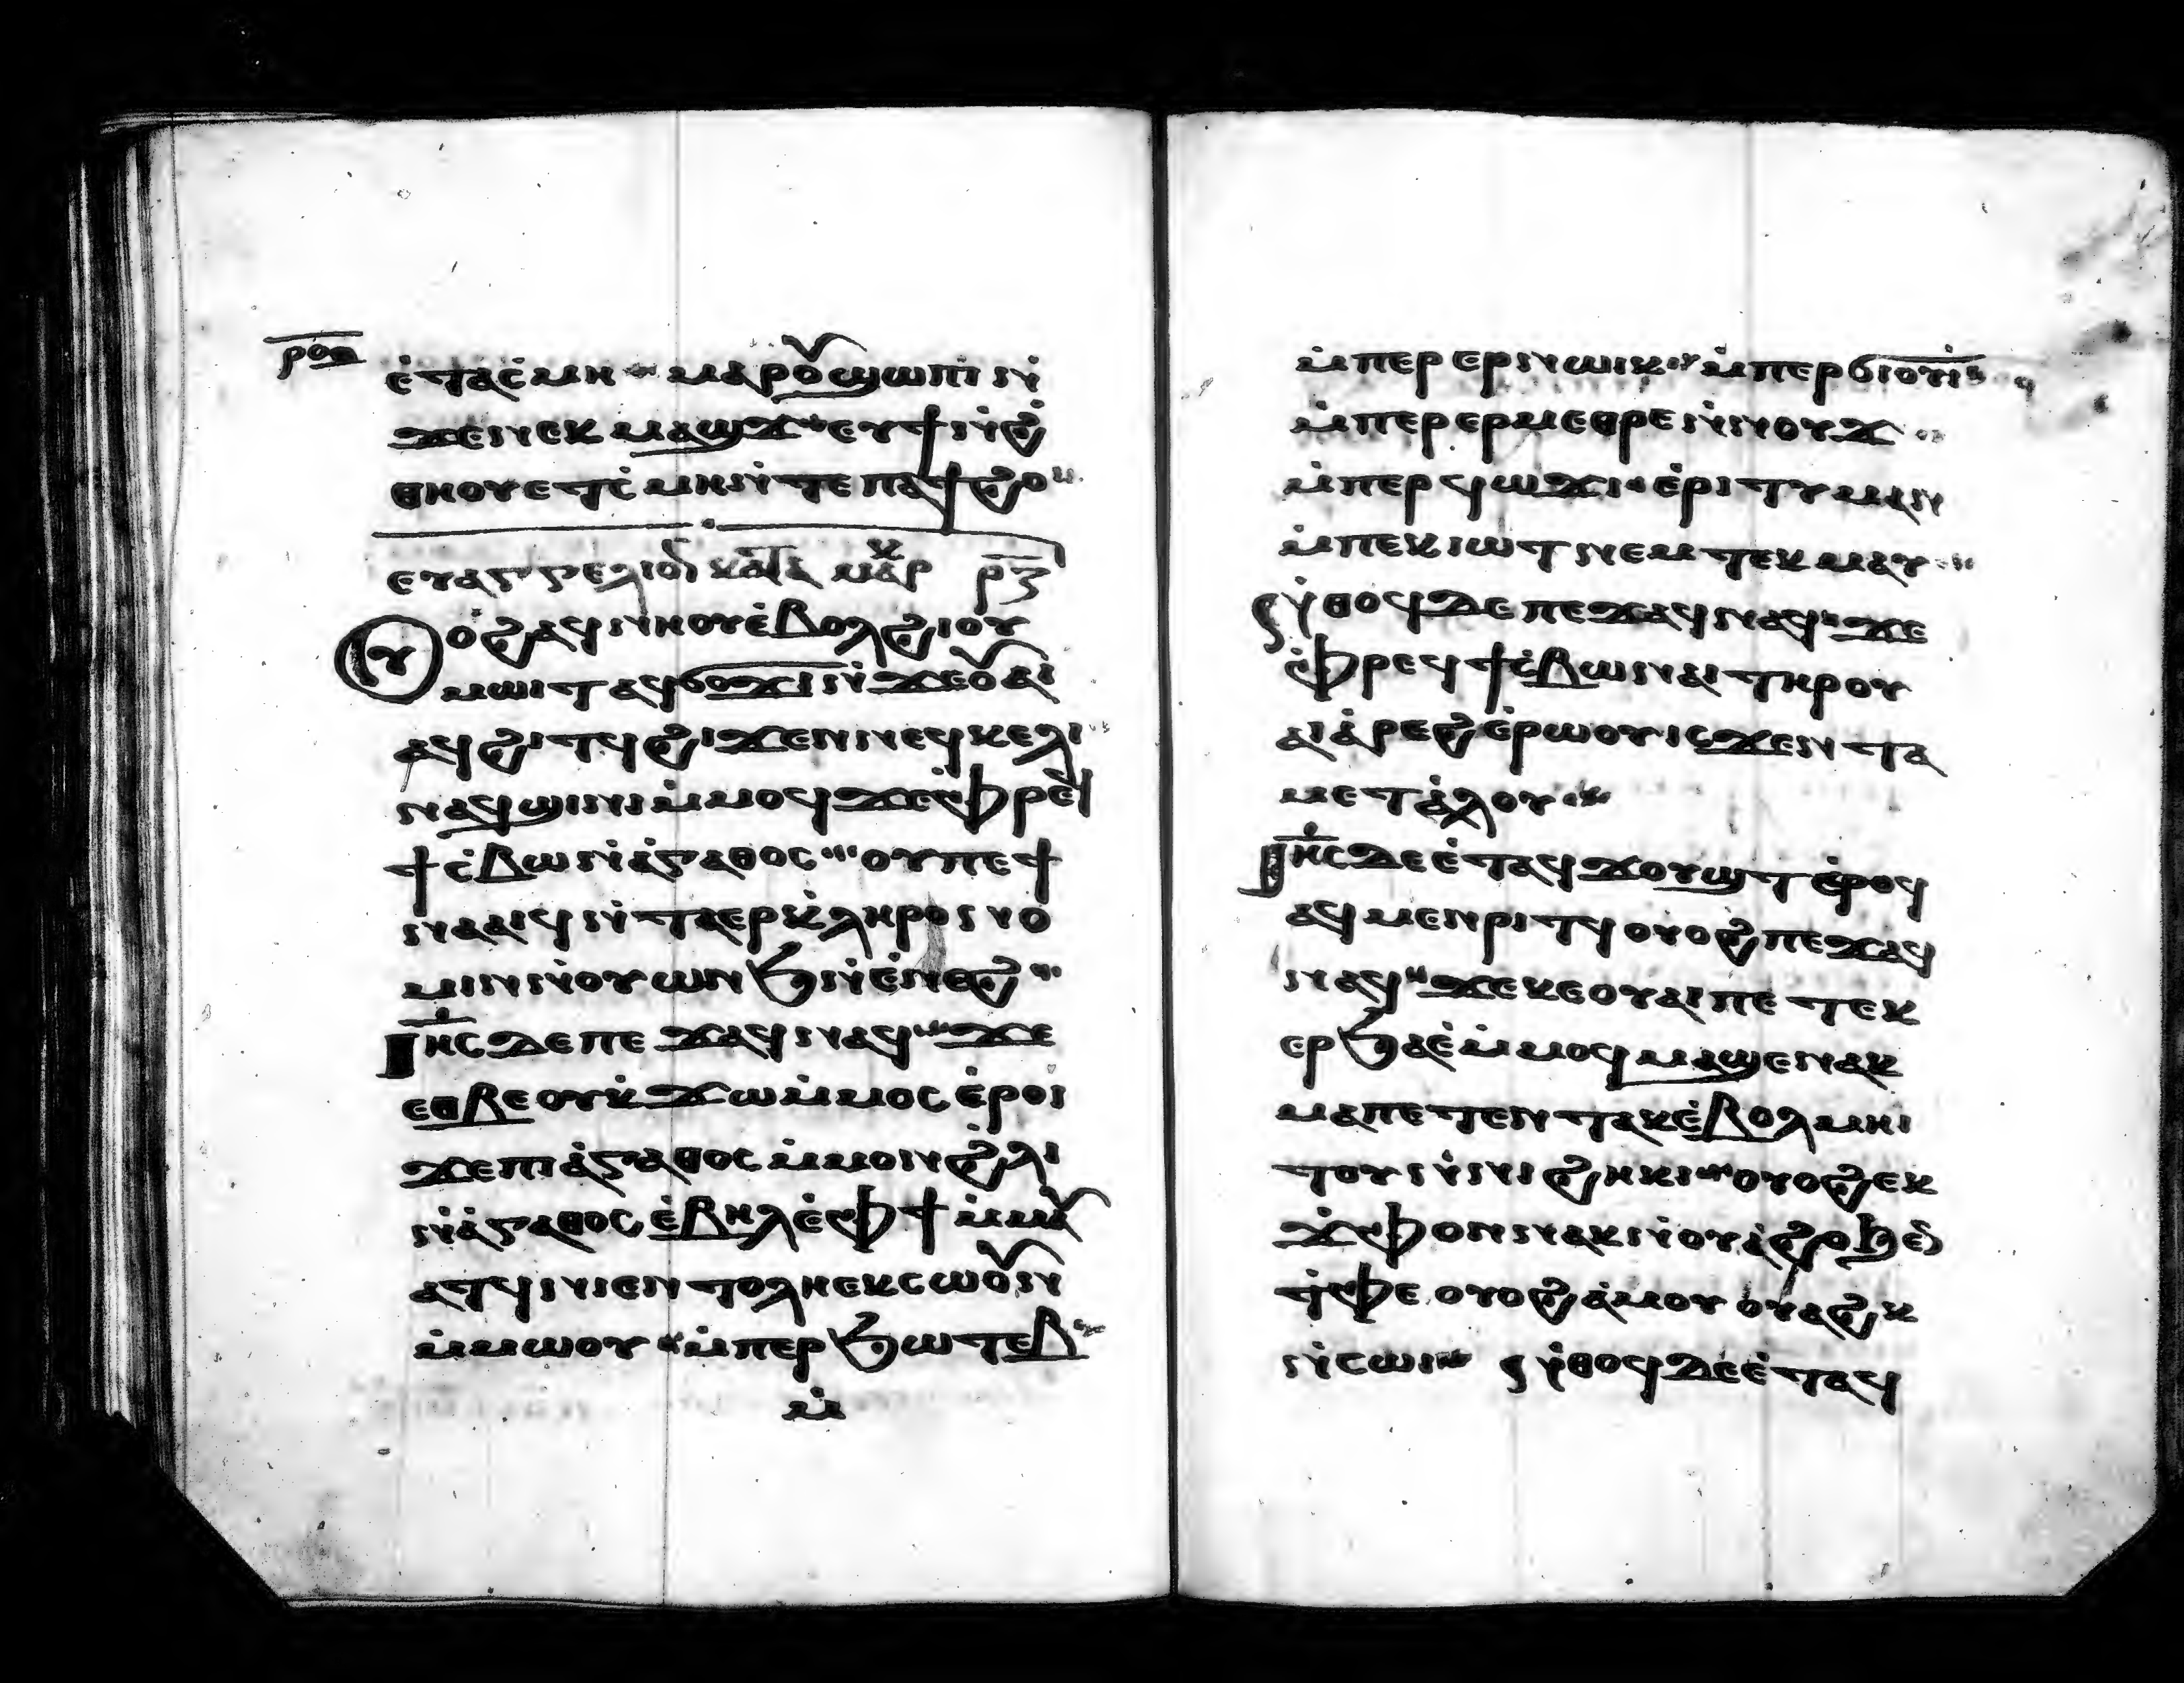 ⲣⲟⲑ
ⲉ̇ⲧⲁⲥ̇ⲙⲏ ⲙⲁⲣⲟⲩϣⲱⲡⲓ ⲛ̇
ϫⲉⲛⲉⲕⲙⲁϣϫ ⲉⲩϯⲛ̇ϩ̇
ⲑⲏⲟⲩ ⲉⲧⲥ̇ⲙⲏ ⲛ̇ⲧⲉ ⲡⲁϯϩⲟ
ⲉⲩⲁⲅⲅⲉⲗⲓⲟⲛ ⲕⲁⲧⲁ ⲙⲁⲣⲕ ⲣⲍ
Ⲟⲩⲟϩ ⲁϥⲛⲏⲟⲩ ⲉ̇ⲃⲟⲗ ϩⲓⲟⲩ
ⲙⲱⲓⲧ ⲁϥϭⲟϫⲓ ⲛ̇ϫⲉⲟⲩⲁⲓ
ⲁϥϩⲓⲧϥ ϩⲓϫⲉⲛ ⲛⲉϥⲕⲉⲗⲓ
ⲛⲁϥϣⲓⲛⲓ ⲙ̇ⲙⲟϥ ϫⲉ ⲫ̇ⲣⲉϥ
ϯⲥ̇ⲃⲱ ⲛ̇ⲁ̇ⲅⲁⲑⲟⲥ ⲟⲩ ⲡⲉϯ
ⲛⲁⲁⲓϥ ⲛ̇ⲧⲁⲉⲣⲕ̇ⲗⲏⲣⲟⲛⲟ
ⲙⲓⲛ ⲛ̇ⲟⲩⲱⲛϧ ⲛ̇ⲉ̇ⲛⲉϩ
Ⲓⲏ̅ⲥ ⲇⲉ ⲡⲉϫⲁϥ ⲛⲁϥ ϫⲉ
ⲉⲑⲃⲉⲟⲩ ⲕ̇ϫⲱ ⲙ̇ⲙⲟⲥ ⲉ̇ⲣⲟⲓ
ϫⲉ ⲡⲓⲁ̇ⲅⲁⲑⲟⲥ ⲙ̇ⲙⲟⲛ ϩ̇ⲗⲓ
ⲛ̇ⲁ̇ⲅⲁⲑⲟⲥ ⲉ̇ⲃⲏⲗ ⲉ̇ⲫϯ ⲙ̇ⲙⲁⲩ
ⲁⲧϥ ⲛⲓⲉⲛⲧⲟⲗⲏ ⲉⲕⲥⲱⲟⲩⲛ
ⲙ̇ⲙⲱⲟⲩ ⲙ̇ⲡⲉⲣϧⲱⲧⲉⲃ
ⲙ̇
ⲙ̇ⲡⲉⲣ ⲉⲣⲛⲱⲓⲕ ⲙ̇ⲡⲉⲣϭⲓⲟⲩⲓ̇
ⲙ̇ⲡⲉⲣ ⲉⲣⲙⲉⲑⲣⲉ ⲛ̇ⲛⲟⲩϫ
ⲙ̇ⲡⲉⲣϥⲱϫⲓ ⲉ̇ⲣⲓⲧⲩⲙⲁⲛ
ⲙ̇ⲡⲉⲕⲓⲱⲧ ⲛⲉⲙ ⲧⲉⲕⲙⲁⲩ
Ⲛ̇ⲑⲟϥ ⲇⲉ ⲡⲉϫⲁϥ ⲛⲁϥ ϫⲉ
ⲫ̇ⲣⲉϥϯⲥ̇ⲃⲱ ⲛⲁⲓ ⲧⲏⲣⲟⲩ
ⲁⲓⲁ̇ⲣⲉϩ ⲉ̇ⲣⲱⲟⲩ ⲓⲥϫⲉⲛ ⲧⲁ
ⲙⲉⲧⲁ̇ⲗⲟⲩ
Ⲓⲏ̅ⲥ ⲇⲉ ⲉ̇ⲧⲁϥϫⲟⲩϣⲧ ⲉ̇ⲣⲟϥ
ⲁϥⲙⲉⲛⲣⲓⲧϥ ⲟⲩⲟϩ ⲡⲉϫⲁϥ
ⲛⲁϥ ϫⲉ ⲕⲉⲟⲩⲁⲓ ⲡⲉⲧⲉⲕ
ⲉⲣϧⲁⲉ̇ ⲙ̇ⲙⲟϥ ⲙⲁϣⲉⲛⲁⲕ
ⲙⲁ ⲡⲉⲧⲉⲛⲧⲁⲕ ⲉ̇ⲃⲟⲗ ⲙⲏⲓ
ⲧⲟⲩ ⲛ̇ⲛⲓϩⲏⲕⲓ ⲟⲩⲟϩ ⲉⲕ
ϫ̇ⲫⲟⲛ ⲛⲁⲕ ⲛ̇ⲟⲩⲁ̇ϩⲟ ϧⲉⲛ
ⲧ̇ⲫⲉ ⲟⲩⲟϩ ⲁ̇ⲙⲟⲩ ⲟⲩⲁϩⲕ
ⲛ̇ⲥⲱⲓ Ⲛ̇ⲑⲟϥ ⲇⲉ ⲉ̇ⲧⲁϥ